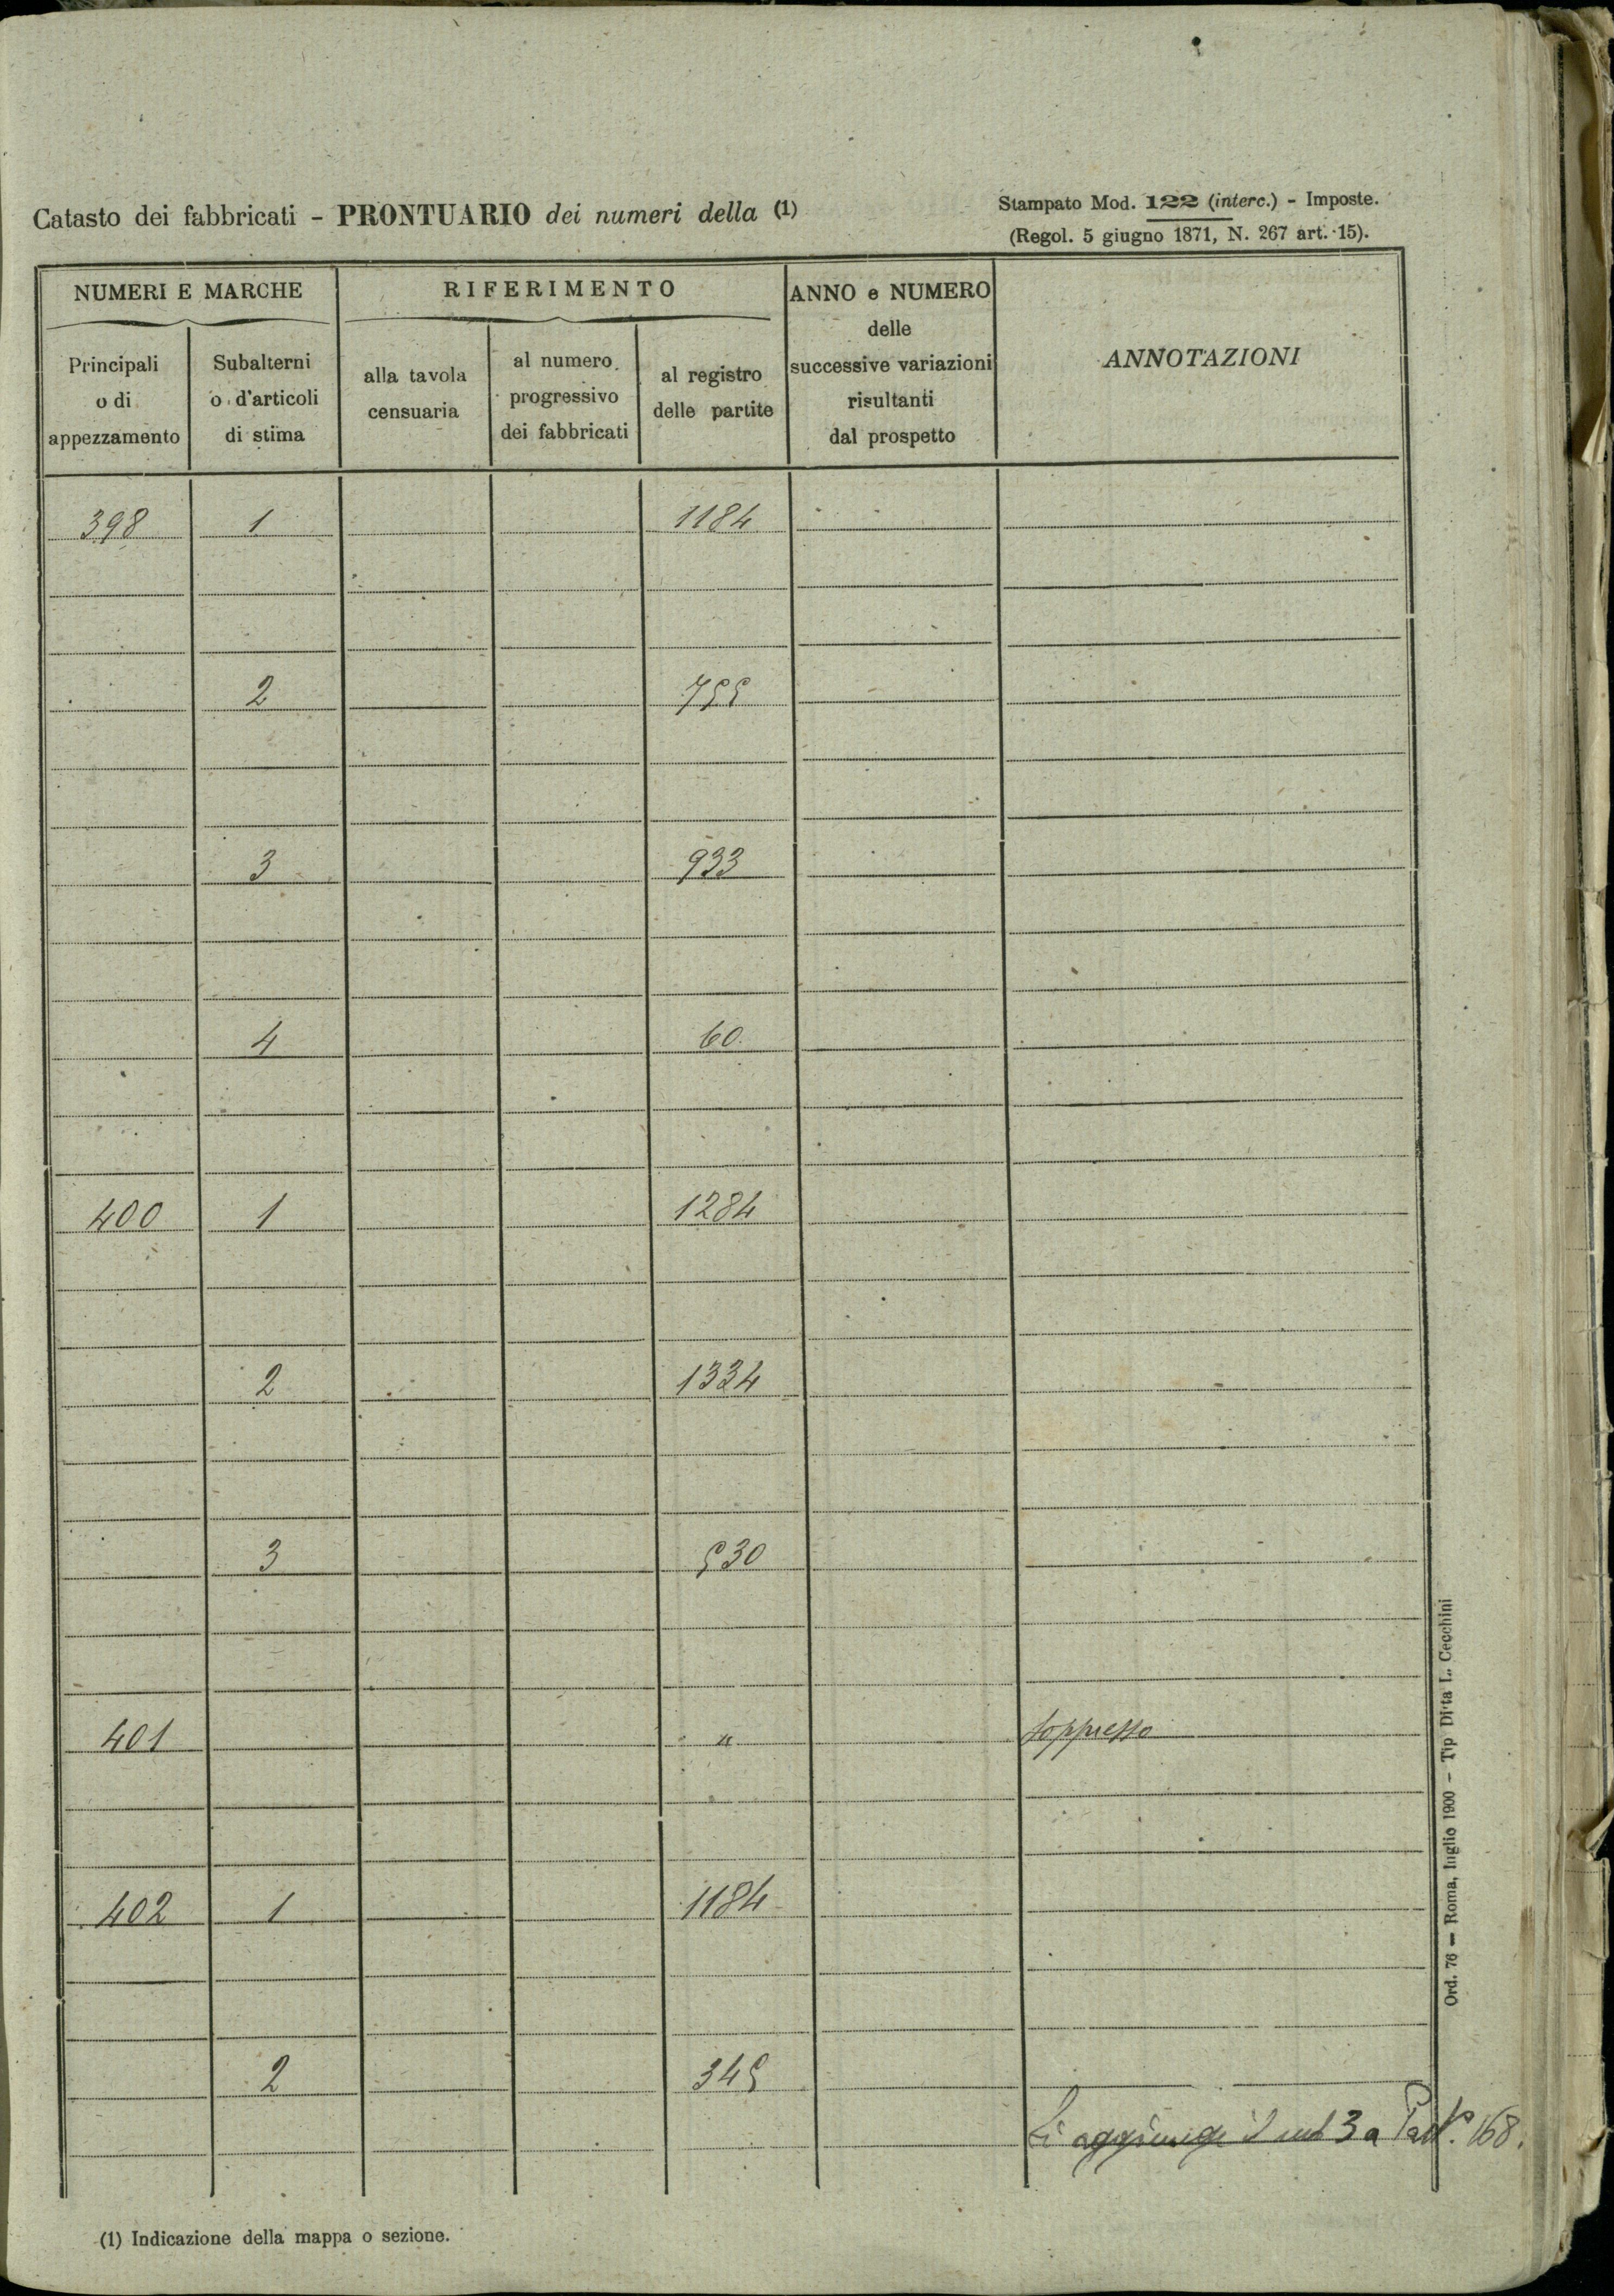 Catasto dei fabbricati - PRONTUARIO dei numeri della (1)
Stampato Mod. 122 (interc.) - Imposte.
(Regol. 5 giugno 1871, N. 267 art. 15).
NUMERI E MARCHE
RIFERIMENTO
ANNO e NUMERO
delle
successive variazioni
risultanti
dal prospetto
ANNOTAZIONI
Principali
o di
appezzamento
Subalterni
o d'articoli
di stima
alla tavola
censuaria
al numero
progressivo
dei fabbricati
al registro
delle partite
398 1 1184
2 755
3 933
4 60
400 1 1284
2 1334
3 530
401 " soppresso
402 1 1184
2 345
Si aggiunge il sub 3 a Part. 168.
Ord. 76 — Roma, luglio 1900 - Tip Ditta L. Cecchini
(1) Indicazione della mappa o sezione.